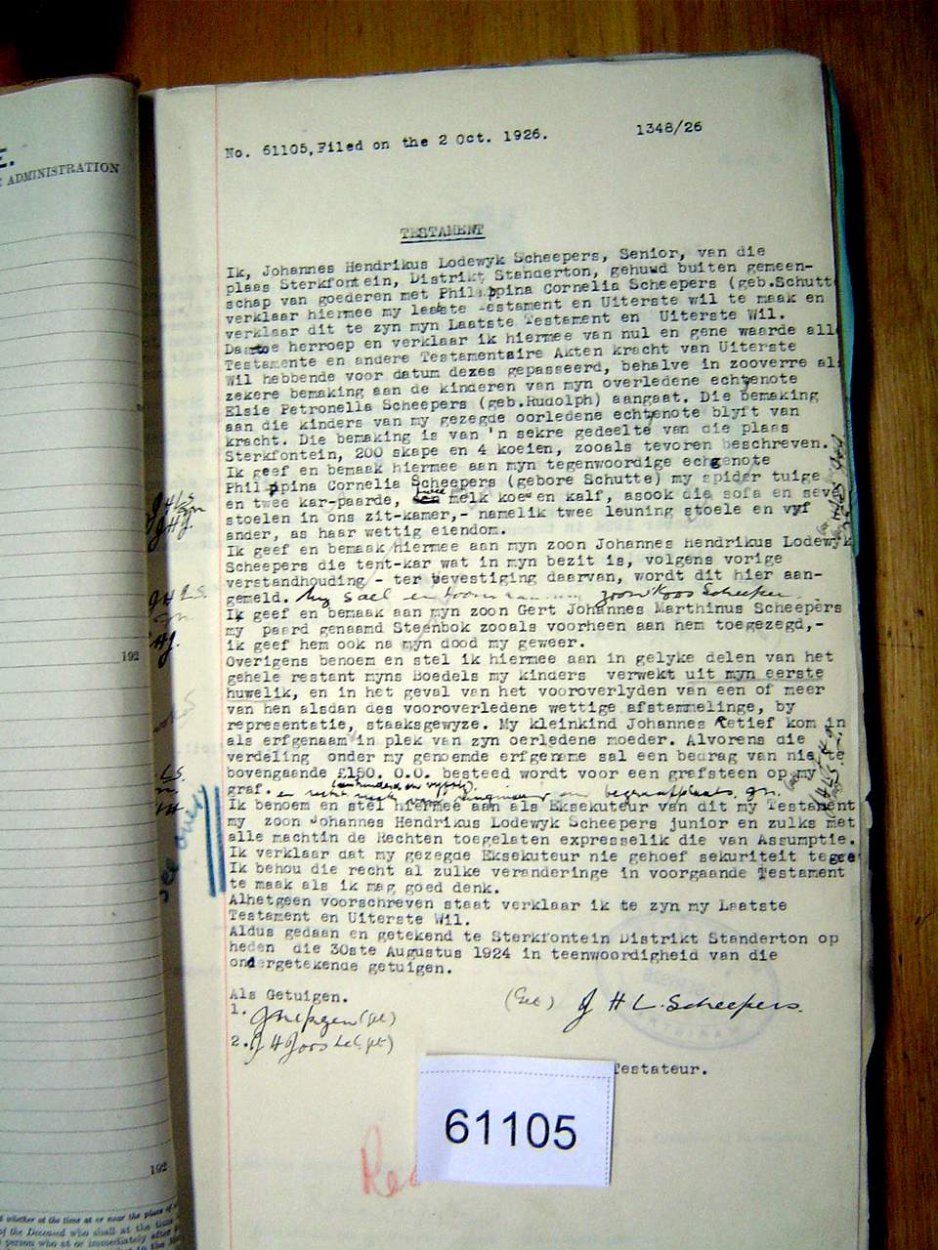 E.
ADMINISTRATION
No. 61105, Filed on the 2 Oct. 1926. 1348/26
TESTAMENT
Ik, Johannes Hendrikus Lodewyk Scheepers, Senior, van die
plaas Sterkfontein, Distrikt Standerton, gehuwd buiten gemeen-
schap van goederen met Philippina Cornelia Scheepers (geb.Schutt
verklaar hiermee my laatste Testament en Uiterste wil te maak en
verklaar dit te zyn myn Laatste Testament en Uiterste Wil.
Daartoe herroep en verklaar ik hiermee van nul en gene waarde alle
Testamente en andere Testamentaire Akten kracht van Uiterste
Wil hebbende voor datum dezes gepasseerd, behalve in zooverre als
zekere bemaking aan de kinderen van myn overledene echtgenote
Elsie Petronella Scheepers (geb.Rudolph) aangaat. Die bemaking
aan die kinders van my gezegde oorledene echtgenote blyft van
kracht. Die bemaking is van 'n sekre gedeelte van die plaas
Sterkfontein, 200 skape en 4 koeien, zooals tevoren beschreven.
Ik geef en bemaak hiermee aan myn tegenwoordige echgenote
Philippina Cornelia Scheepers (gebore Schutte) my spider tuige
en twee kar-paarde, twee melk koe en kalf, asook die sofa en sewe
stoelen in ons zit-kamer,- namelik twee leuning stoele en vyf
ander, as haar wettig eiendom.
Ik geef en bemaak hiermee aan myn zoon Johannes Hendrikus Lodewyk
Scheepers die tent-kar wat in myn bezit is, volgens vorige
verstandhouding - ter bevestiging daarvan, wordt dit hier aan-
gemeld. My sael en toom aan my zoon Koos Scheepers.
Ik geef en bemaak aan myn zoon Gert Johannes Marthinus Scheepers
my paard genaamd Steenbok zooals voorheen aan hem toegezegd,-
ik geef hem ook na myn dood my geweer.
Overigens benoem en stel ik hiermee aan in gelyke delen van het
gehele restant myns Boedels my kinders verwekt uit myn eerste
huwelik, en in het geval van het vooroverlyden van een of meer
van hen alsdan des vooroverledene wettige afstammelinge, by
representatie, staaksgewyze. My kleinkind Johannes Retief kom in
als erfgenaam in plek van zyn oerledene moeder. Alvorens die
verdeling onder my genoemde erfgename sal een bedrag van nie te
bovengaande £150. 0.0. besteed wordt voor een grafsteen op my
graf. en begraafplaats.
Ik benoem en stel hiermee aan als Eksekuteur van dit my Testament
my zoon Johannes Hendrikus Lodewyk Scheepers junior en zulks met
alle machtin de Rechten toegelaten expresselik die van Assumptie.
Ik verklaar dat my gezegde Eksekuteur nie gehoef sekuriteit tegee
Ik behou die recht al zulke veranderinge in voorgaande Testament
te maak als ik mag goed denk.
Alhetgeen voorschreven staat verklaar ik te zyn my Laatste
Testament en Uiterste Wil.
Aldus gedaan en getekend te Sterkfontein Distrikt Standerton op
heden die 30ste Augustus 1924 in teenwoordigheid van die
ondergetekende getuigen.
Als Getuigen.
(Get) J H L Scheepers.
1.
2. J H
Testateur.
61105
192
192
See over